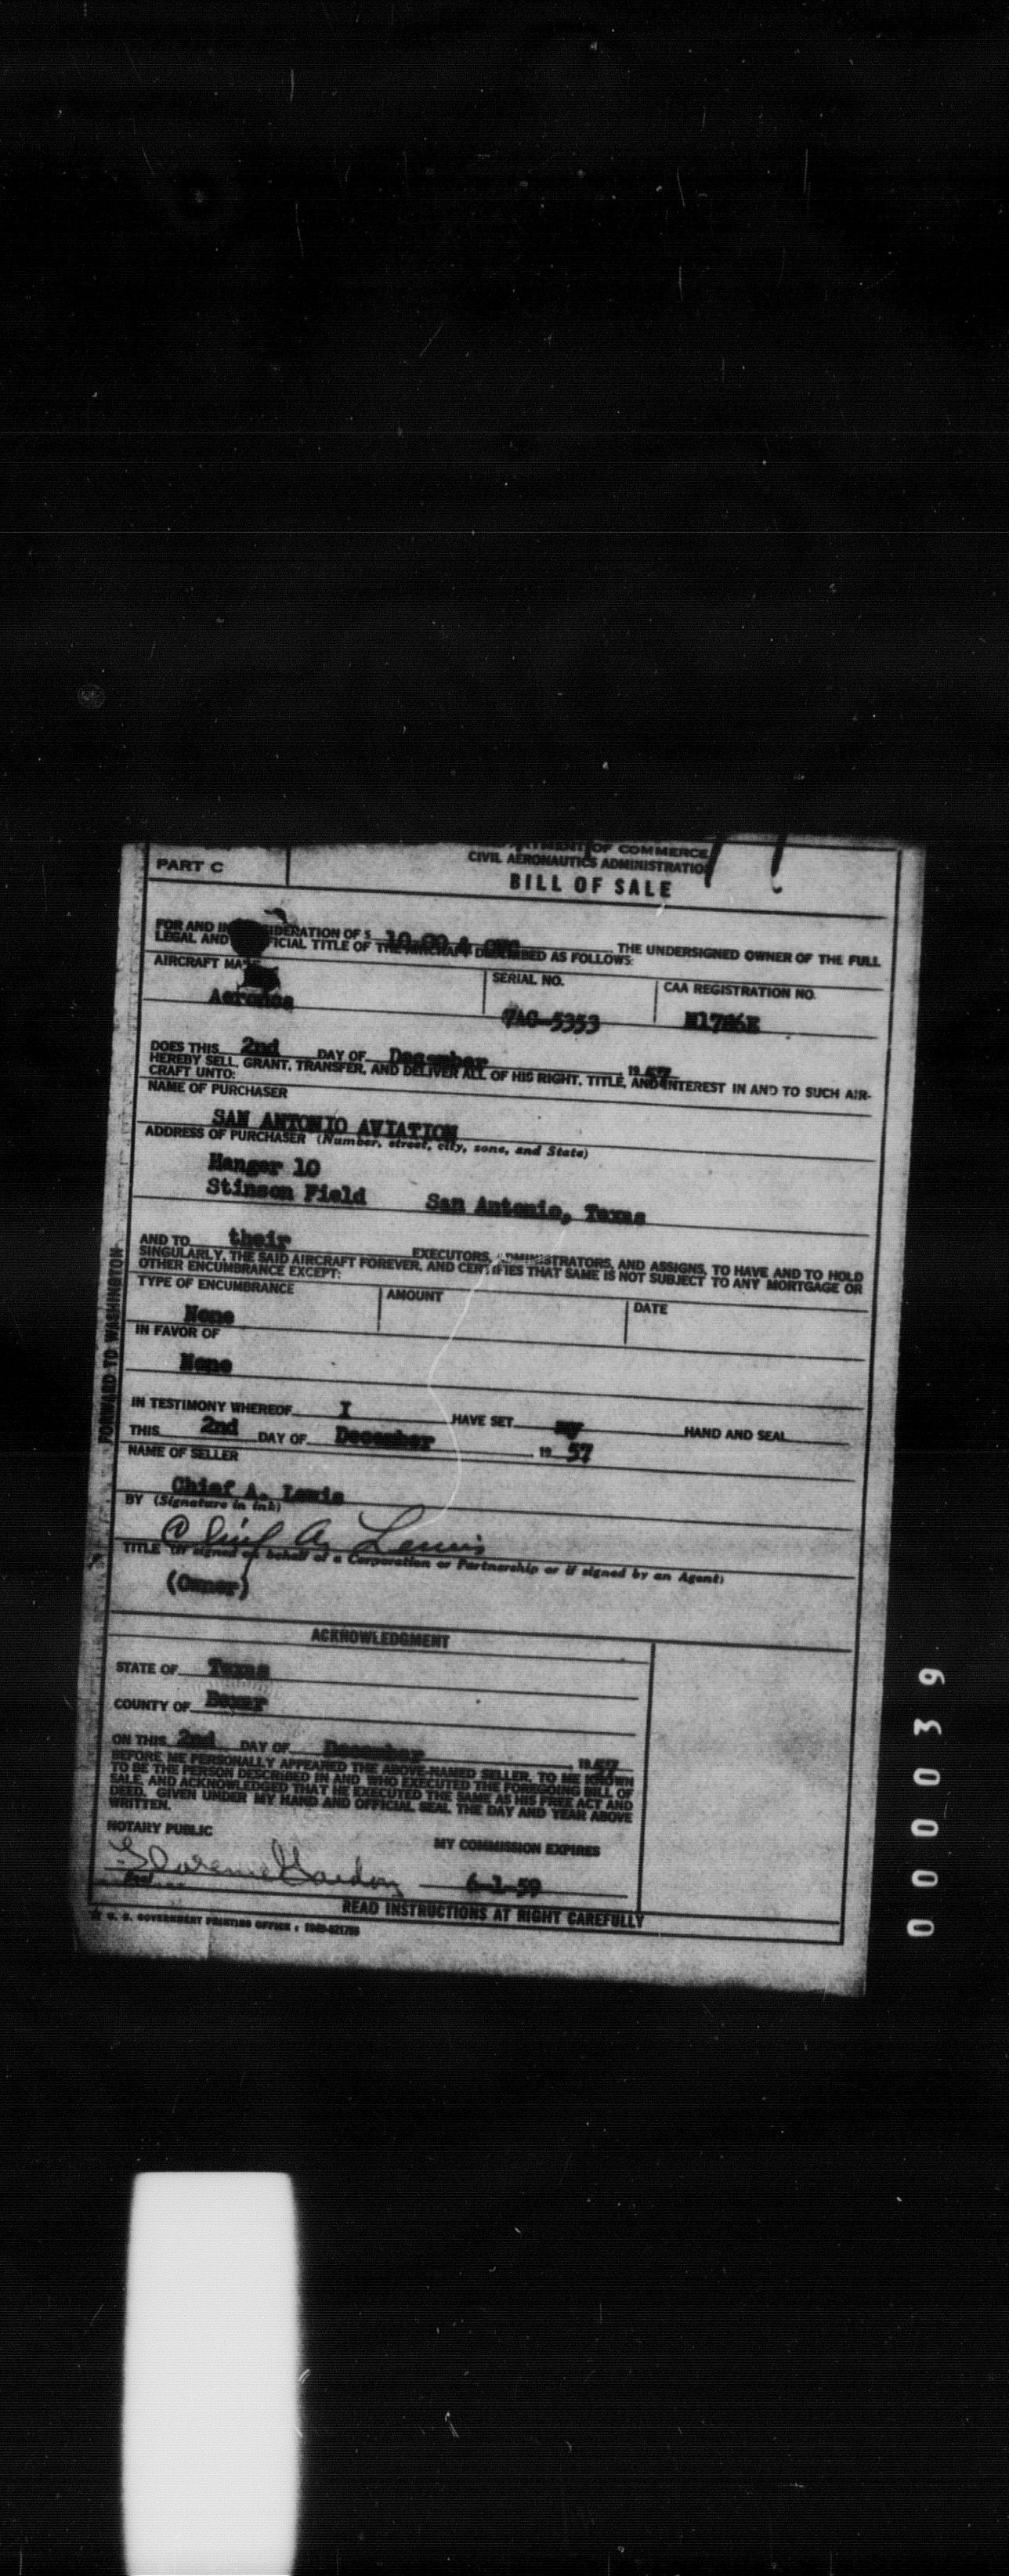 PART C
OF COMMERCE
CIVIL AERONAUTICS ADMINISTRATION
BILL OF SALE
FOR AND IN CONSIDERATION OF $ 10.00 & OVC THE UNDERSIGNED OWNER OF THE FULL
LEGAL AND BENEFICIAL TITLE OF THE AIRCRAFT DESCRIBED AS FOLLOWS:
AIRCRAFT MAKE SERIAL NO. CAA REGISTRATION NO.
Aeronca 7AC-5353 N1786E
DOES THIS 2nd DAY OF December 1957
HEREBY SELL, GRANT, TRANSFER, AND DELIVER ALL OF HIS RIGHT, TITLE, AND INTEREST IN AND TO SUCH AIR-
CRAFT UNTO:
NAME OF PURCHASER
SAN ANTONIO AVIATION
ADDRESS OF PURCHASER (Number, street, city, zone, and State)
Hanger 10
Stinson Field San Antonio, Texas
AND TO their EXECUTORS, ADMINISTRATORS, AND ASSIGNS, TO HAVE AND TO HOLD
SINGULARLY, THE SAID AIRCRAFT FOREVER, AND CERTIFIES THAT SAME IS NOT SUBJECT TO ANY MORTGAGE OR
OTHER ENCUMBRANCE EXCEPT:
TYPE OF ENCUMBRANCE AMOUNT DATE
None
IN FAVOR OF
None
IN TESTIMONY WHEREOF I HAVE SET my HAND AND SEAL
THIS 2nd DAY OF December 19 57
NAME OF SELLER
Chief A. Lewis
BY (Signature in ink)
Chief A. Lewis
TITLE (If signed on behalf of a Corporation or Partnership or if signed by an Agent)
(Owner)
FORWARD TO WASHINGTON
ACKNOWLEDGMENT
STATE OF Texas
COUNTY OF Bexar
ON THIS 2nd DAY OF December 1957
BEFORE ME PERSONALLY APPEARED THE ABOVE-NAMED SELLER, TO ME KNOWN
TO BE THE PERSON DESCRIBED IN AND WHO EXECUTED THE FOREGOING BILL OF
SALE, AND ACKNOWLEDGED THAT HE EXECUTED THE SAME AS HIS FREE ACT AND
DEED. GIVEN UNDER MY HAND AND OFFICIAL SEAL THE DAY AND YEAR ABOVE
WRITTEN.
NOTARY PUBLIC MY COMMISSION EXPIRES
6-1-59
READ INSTRUCTIONS AT RIGHT CAREFULLY
U. S. GOVERNMENT PRINTING OFFICE : 1949-821755
000039